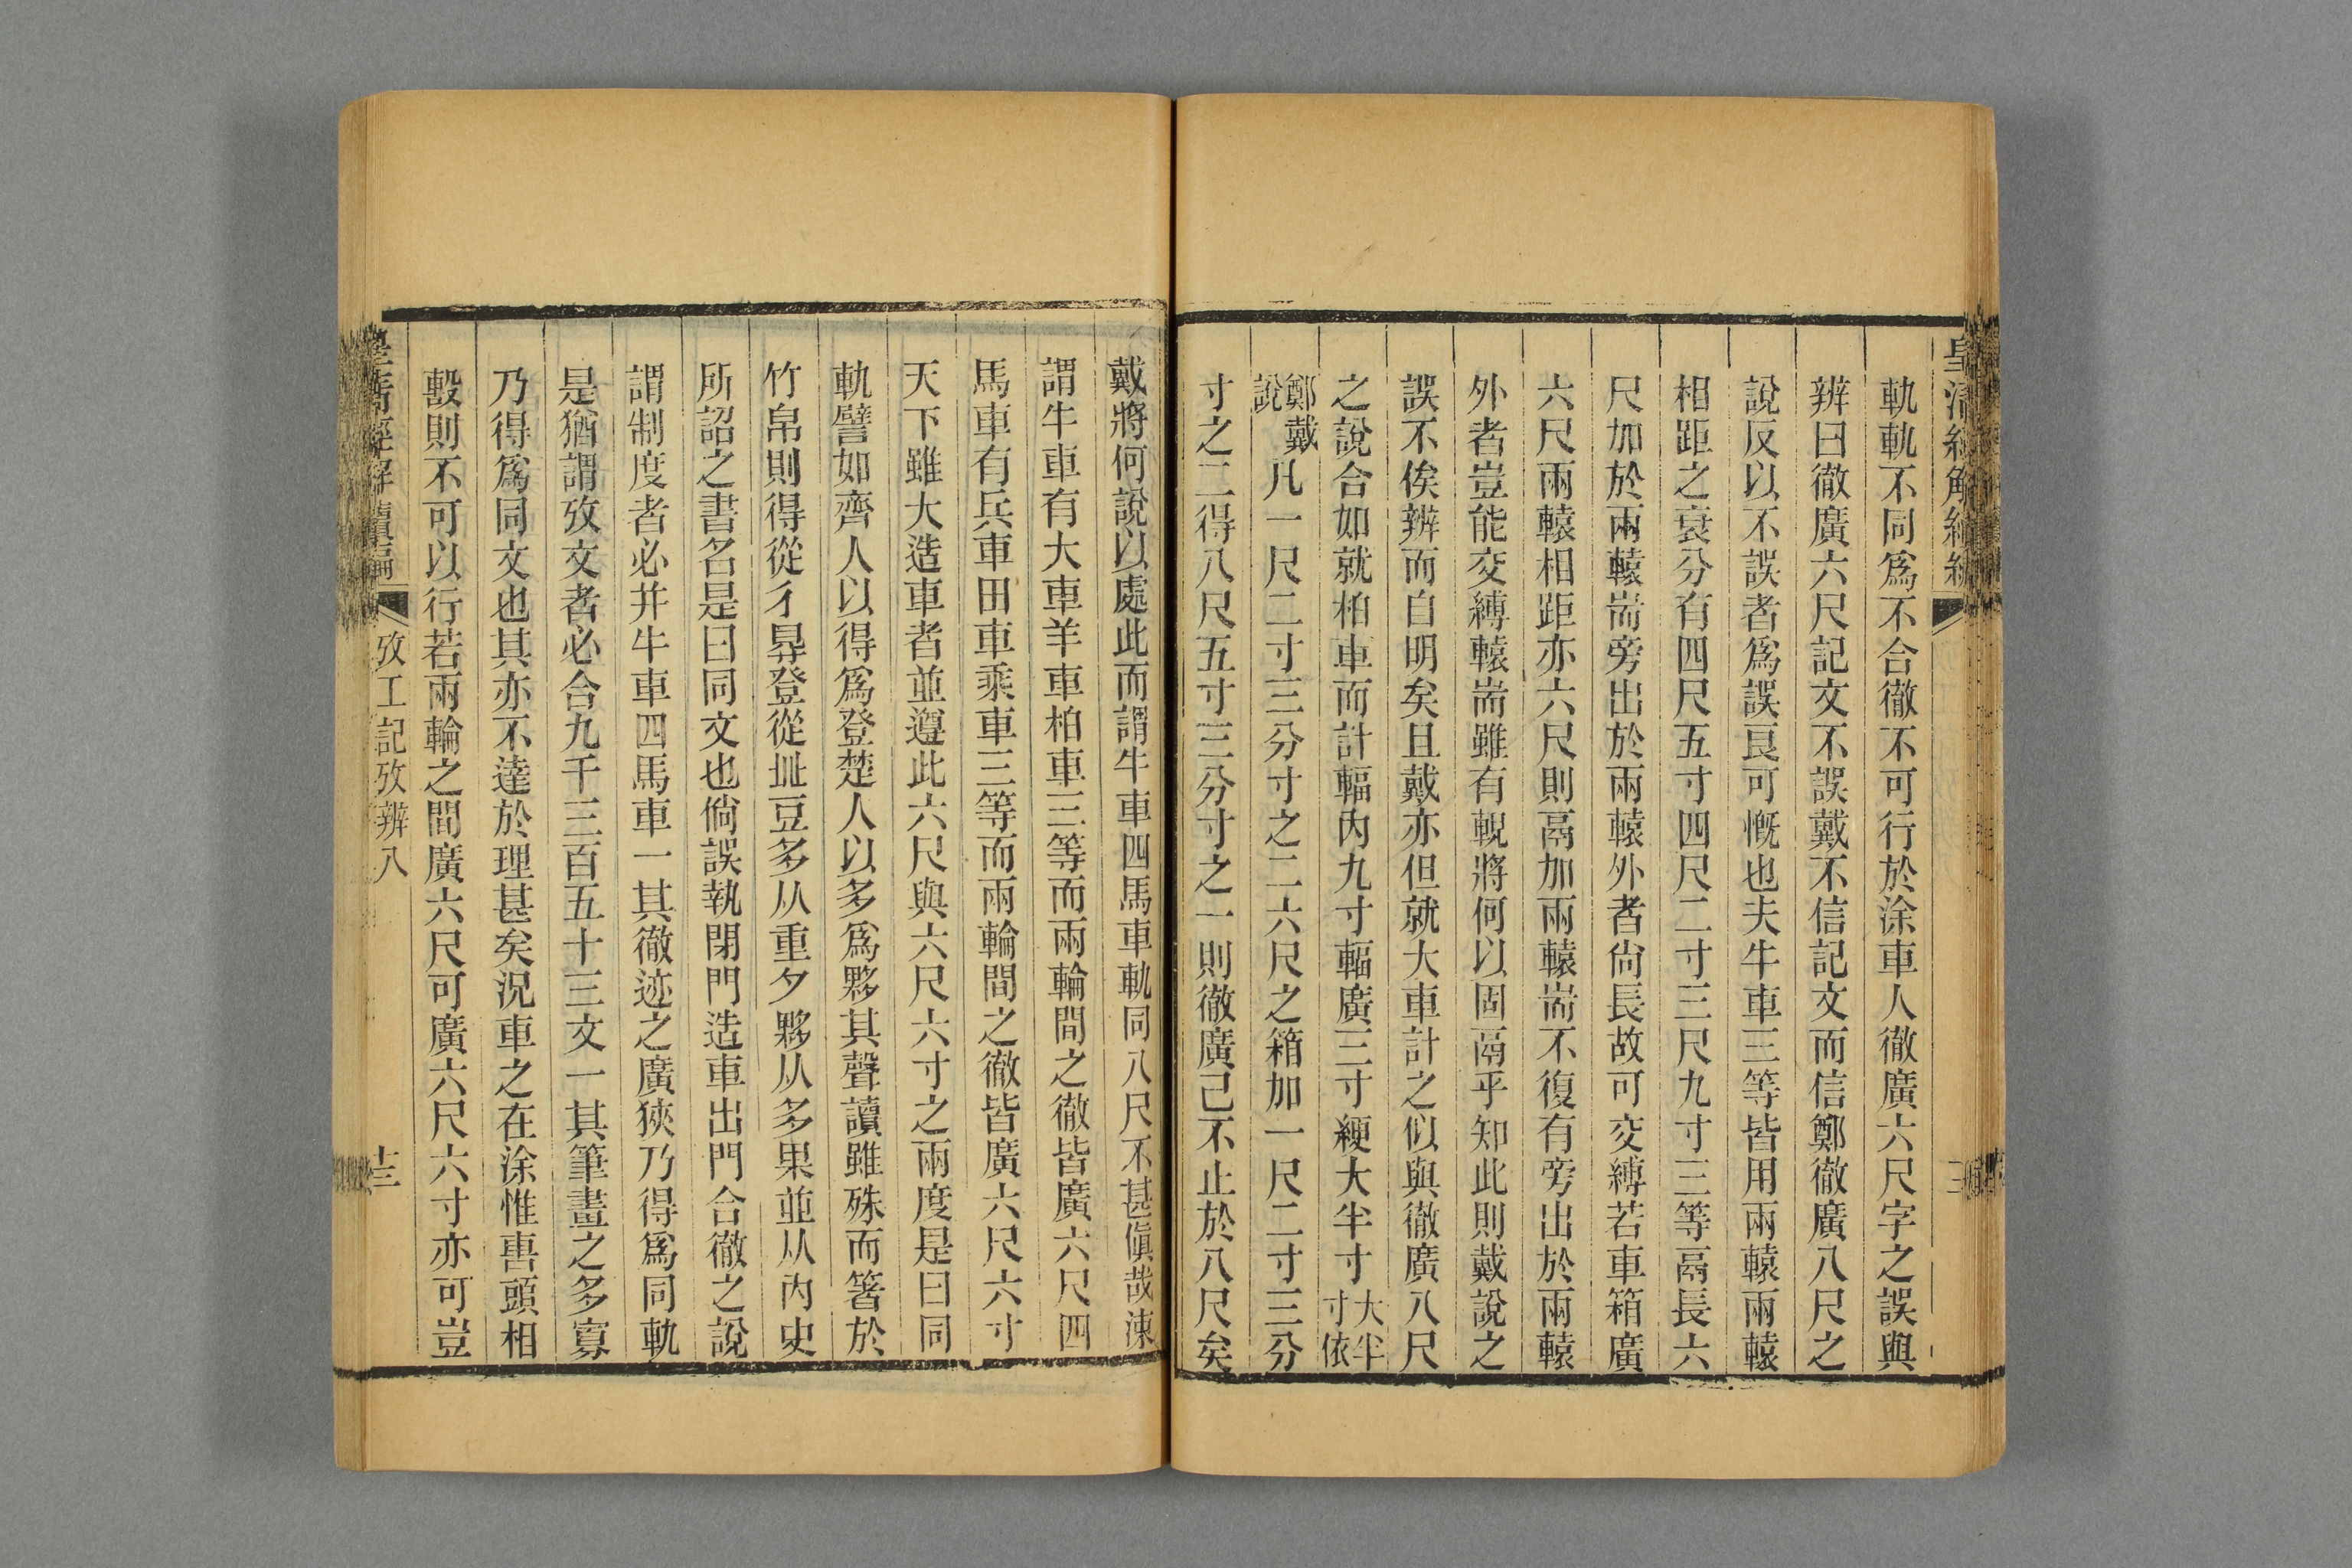 軌軌不同爲不合徹不可行於涂車人徹廣六尺字之誤與
辨曰徹廣六尺記文不誤戴不信記文而信鄭徹廣八尺之
說反以不誤者爲誤良可慨也夫牛車三等皆用兩轅兩轅
相距之衰分有四尺五寸四尺二寸三尺九寸三等鬲長六
尺加於兩轅耑旁出於兩轅外者尙長故可交縛若車箱廣
六尺兩轅相距亦六尺則鬲加兩轅耑不復有旁出於兩轅
外者豈能交縛轅耑雖有輗將何以固鬲乎知此則戴說之
誤不俟辨而自明矣且戴亦但就大車計之似與徹廣八尺
之說合如就柏車而計輻內九寸輻廣三寸綆大半寸大半寸依
鄭戴說凡一尺二寸三分寸之二六尺之箱加一尺二寸三分
寸之二得八尺五寸三分寸之一則徹廣已不止於八尺矣
戴將何說以處此而謂牛車四馬車軌同八尺不甚傎哉涷
謂牛車有大車羊車柏車三等而兩輪間之徹皆廣六尺四
馬車有兵車田車乘車三等而兩輪間之徹皆廣六尺六寸
天下雖大造車者並遵此六尺與六尺六寸之兩度是曰同
軌譬如齊人以得爲登楚人以多爲夥其聲讀雖殊而箸於
竹帛則得從彳㝵登從癶豆多从重夕夥从多果並从內史
所詔之書名是曰同文也倘誤執閉門造車出門合徹之說
謂制度者必并牛車四馬車一其徹迹之廣狹乃得爲同軌
是猶謂攷文者必合九千三百五十三文一其筆畫之多寡
乃得爲同文也其亦不達於理甚矣況車之在涂惟軎頭相
轚則不可以行若兩輪之間廣六尺可廣六尺六寸亦可豈
皇淸經解續編
攷工記攷辨八
十三